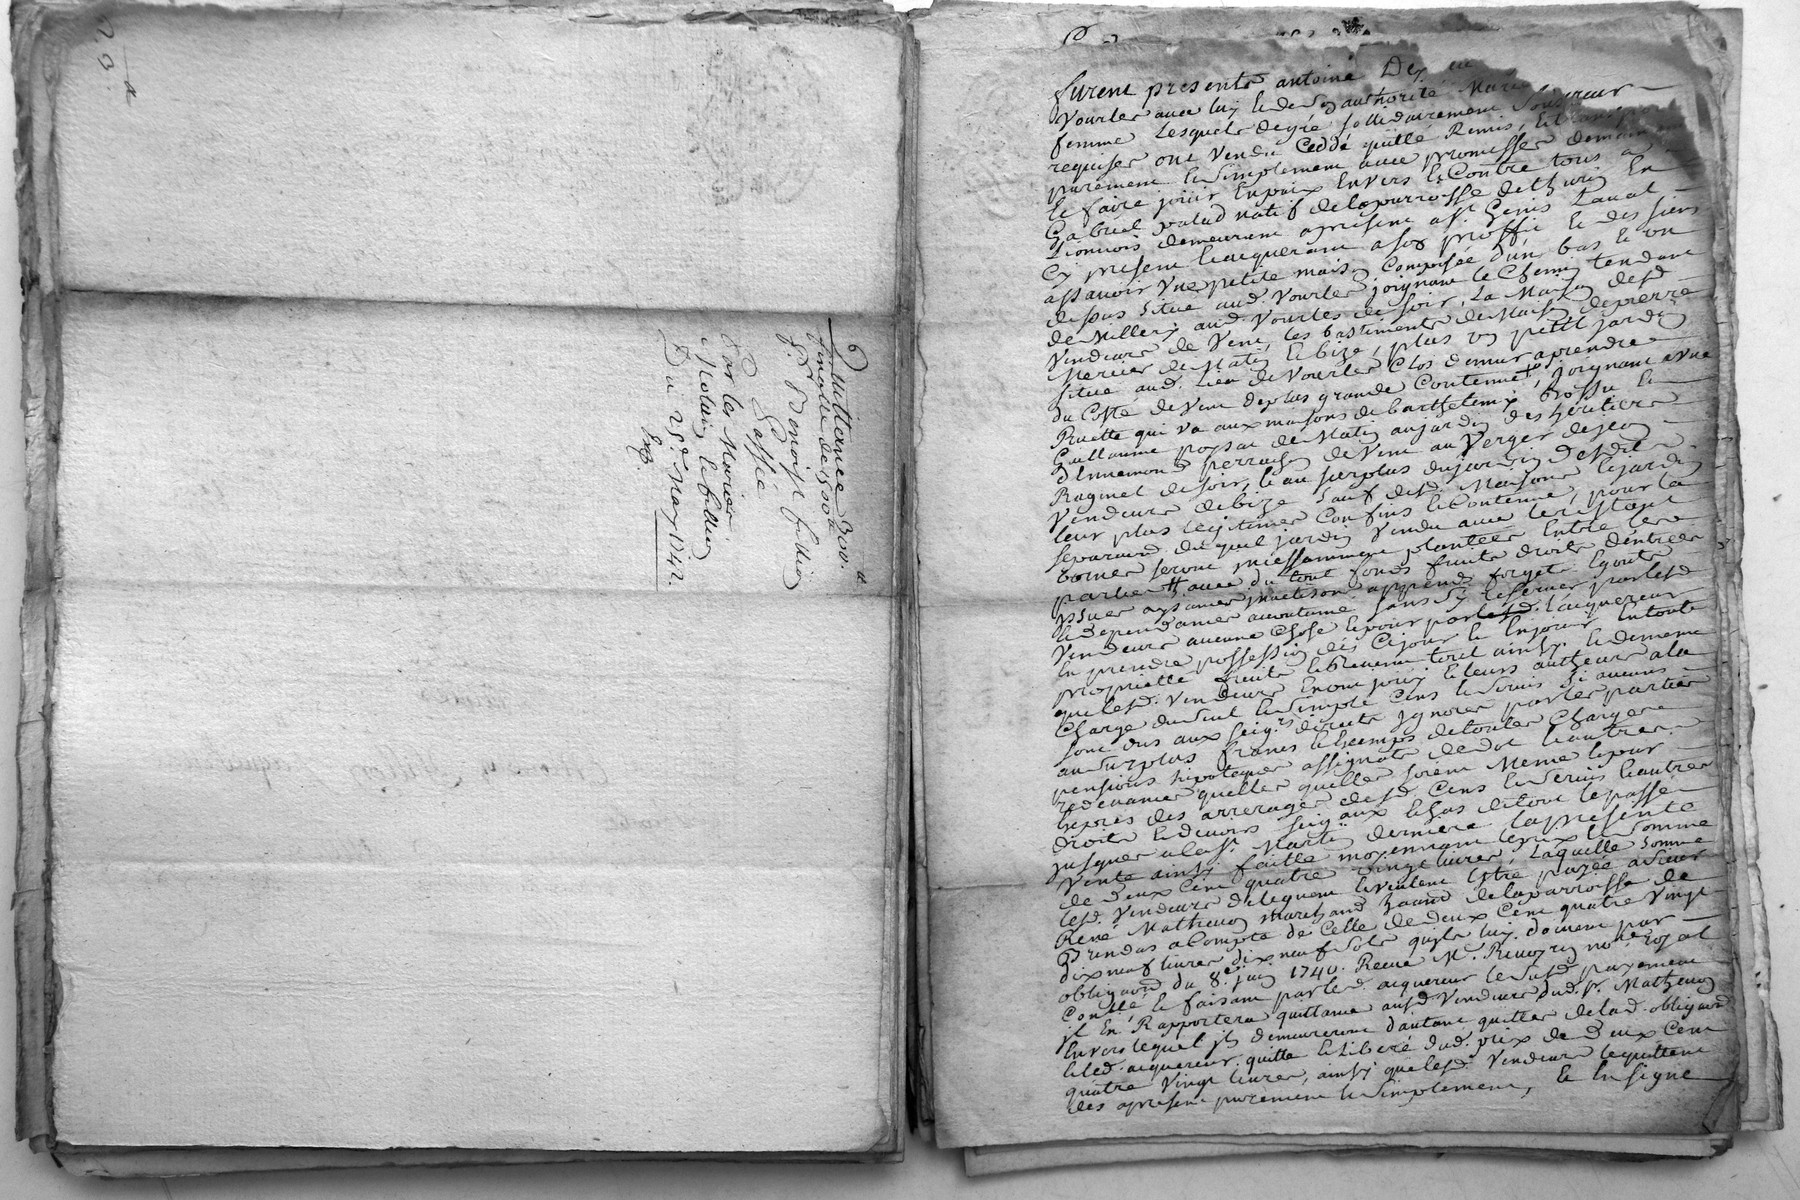 Quittance 300.
Sr. Benoist fillion
Passée
Par les Mariés
Du 25e. May 1742.
Exp.
furent presents antoine
Vourles avec luy et de son authorité Marie
femme Lesquels de gré sollidairement
requiser ont Vendu Ceddé quitté Remis, et transporté
purement et simplement avec promesses de maintenir
et faire jouir En paix Envers et Contre tous a
Gabriel valud natif de la parroisse de thurin En
Lionnois demeurant a present a St. Genis Laval
Cy present et acquerant a son proffit et des siens
assavoir Une petite maison Composée d'un bas et un
dessus située aud. Vourles joignant le Chemin tendant
de Millery aud. Vourles de soir, La Maison desd.
Vendeurs de Vent, les bastiments de Maison de pierre
Mercier de Matin et bize, plus un petit jardin
situé aud. Lieu de Vourles Clos de murs a prendre
du Costé de Vent de plus grande Contenue, joignant a Une
Ruette qui va aux maisons de barthelemy brossu et
Guillaume poysat de Matin au jardin des heritiers
d'Ennemond perrachon de Vent au Verger de jean
Raginel de soir, et au surplus du jardin desdits
Vendeurs de bize sauf desd. Maisons et jardin
leur plus legitimes Confins et Contenue, pour la
separaon. duquel jardin Vendu avec le restant
bornes seront incessamment plantées Entre les
parties # avec du tout fonds fruits droits d'entrées
issues aysances
et dependances accoutumé sans s'y reserver par lesd.
Vendeurs aucune Chose et pour par l'acquereur
En prendre possession des Ce jour et En jouir En toute
proprietté et tout ainsy et de meme
que lesd. Vendeurs En ont jouy et leurs autheurs a la
Charge du seul et simple Cens et servis si aucuns
sont dus aux seigrs. directs ignorés par les parties
au surplus francs et exemps de toutes Charges
pensions hipoteques assignats de dot et autres
redevances quelles qu'elles soient Meme et par
Exprès des arrerages desd. Cens et servis et autres
droits et devoirs seigaux et Cas de tout le passé
jusques a la St. Martin derniere. la presente
Vente ainsy faitte moyennant le prix et somme
de deux Cent quatre Vingt livres, Laquelle somme
lesd. Vendeurs deleguent et veulent Estre payée a sieur
René Mathevon Marchand de la parroisse de
Brindas a Compte de Celle de deux Cent quatre Vingt
dix neuf livres dix neuf sols qu'ils luy doivent par
obligaon du 8e. juin 1740. Recue Me. nore. royal
et le faisant par led. acquereur led. payement
il En Rapportera quittance ausd. Vendeurs dud. sr. Mathevon
Envers lequel ils demeureront d'autant quittes de lad. obligaon
et led. acquereur quitte et Liberé dud. prix de Deux Cent
quatre Vingt livres, ainsy que lesd. Vendeurs le quittent
des a present purement et simplement, Et En signe